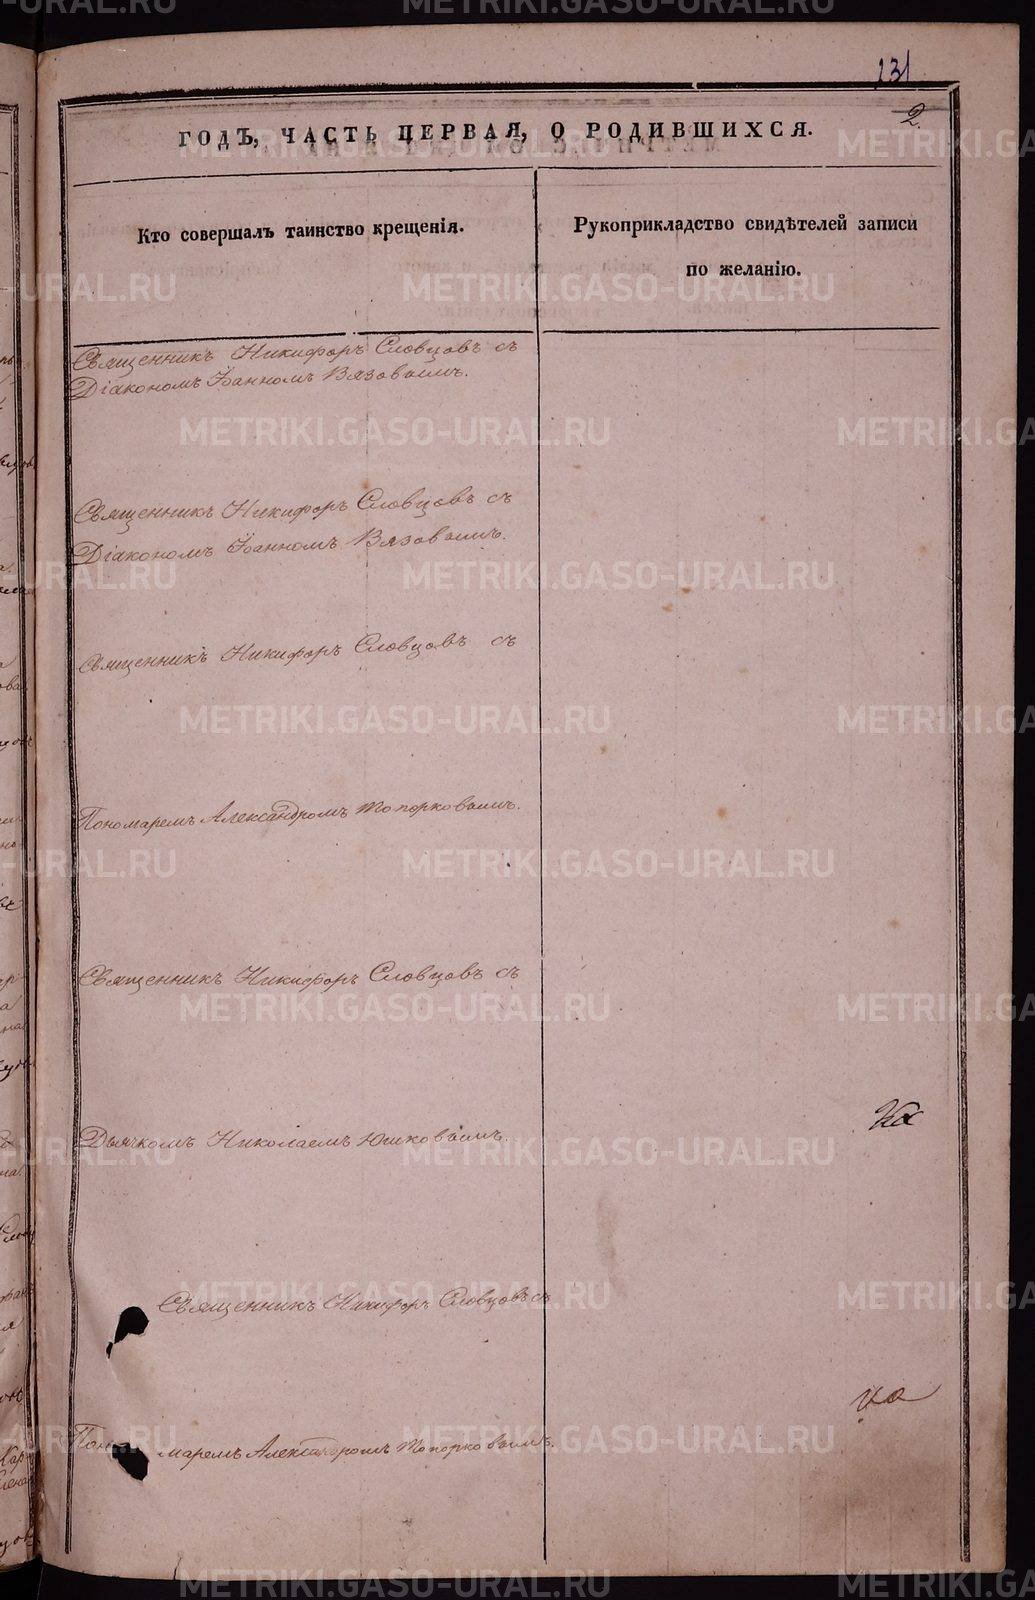 231
2.
ГОДЪ, ЧАСТЬ ПЕРВАЯ, О РОДИВШИХСЯ.
Кто совершалъ таинство крещенія.
Рукоприкладство свидѣтелей записи
по желанію.
Священникъ Никифоръ Словцовъ съ
Діакономъ Іоанномъ Вязовымъ.
Священникъ Никифоръ Словцовъ съ
Діакономъ Іоанномъ Вязовымъ.
Священникъ Никифоръ Словцовъ съ
Пономаремъ Александромъ Топорковымъ.
Священникъ Никифоръ Словцовъ съ
Дьячкомъ Николаемъ Юшковымъ.
Священникъ Никифоръ Словцовъ съ
Пономаремъ Александромъ Топорковымъ.
METRIKI.GASO-URAL.RU